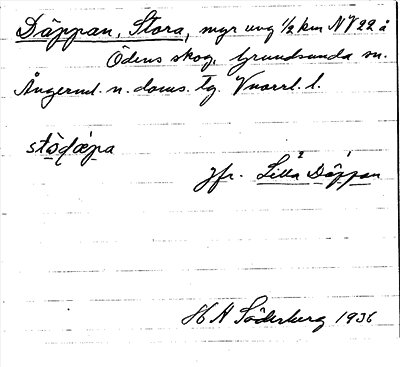 Däppan, Stora, myr ung 1/2 km NV 22 å
Ödens skog, Grundsunda sn.
Ångerml. n. doms. tg. Vnorrl. l.
stòdæpa
Jfr. Lilla Däppan
H A Söderberg 1936